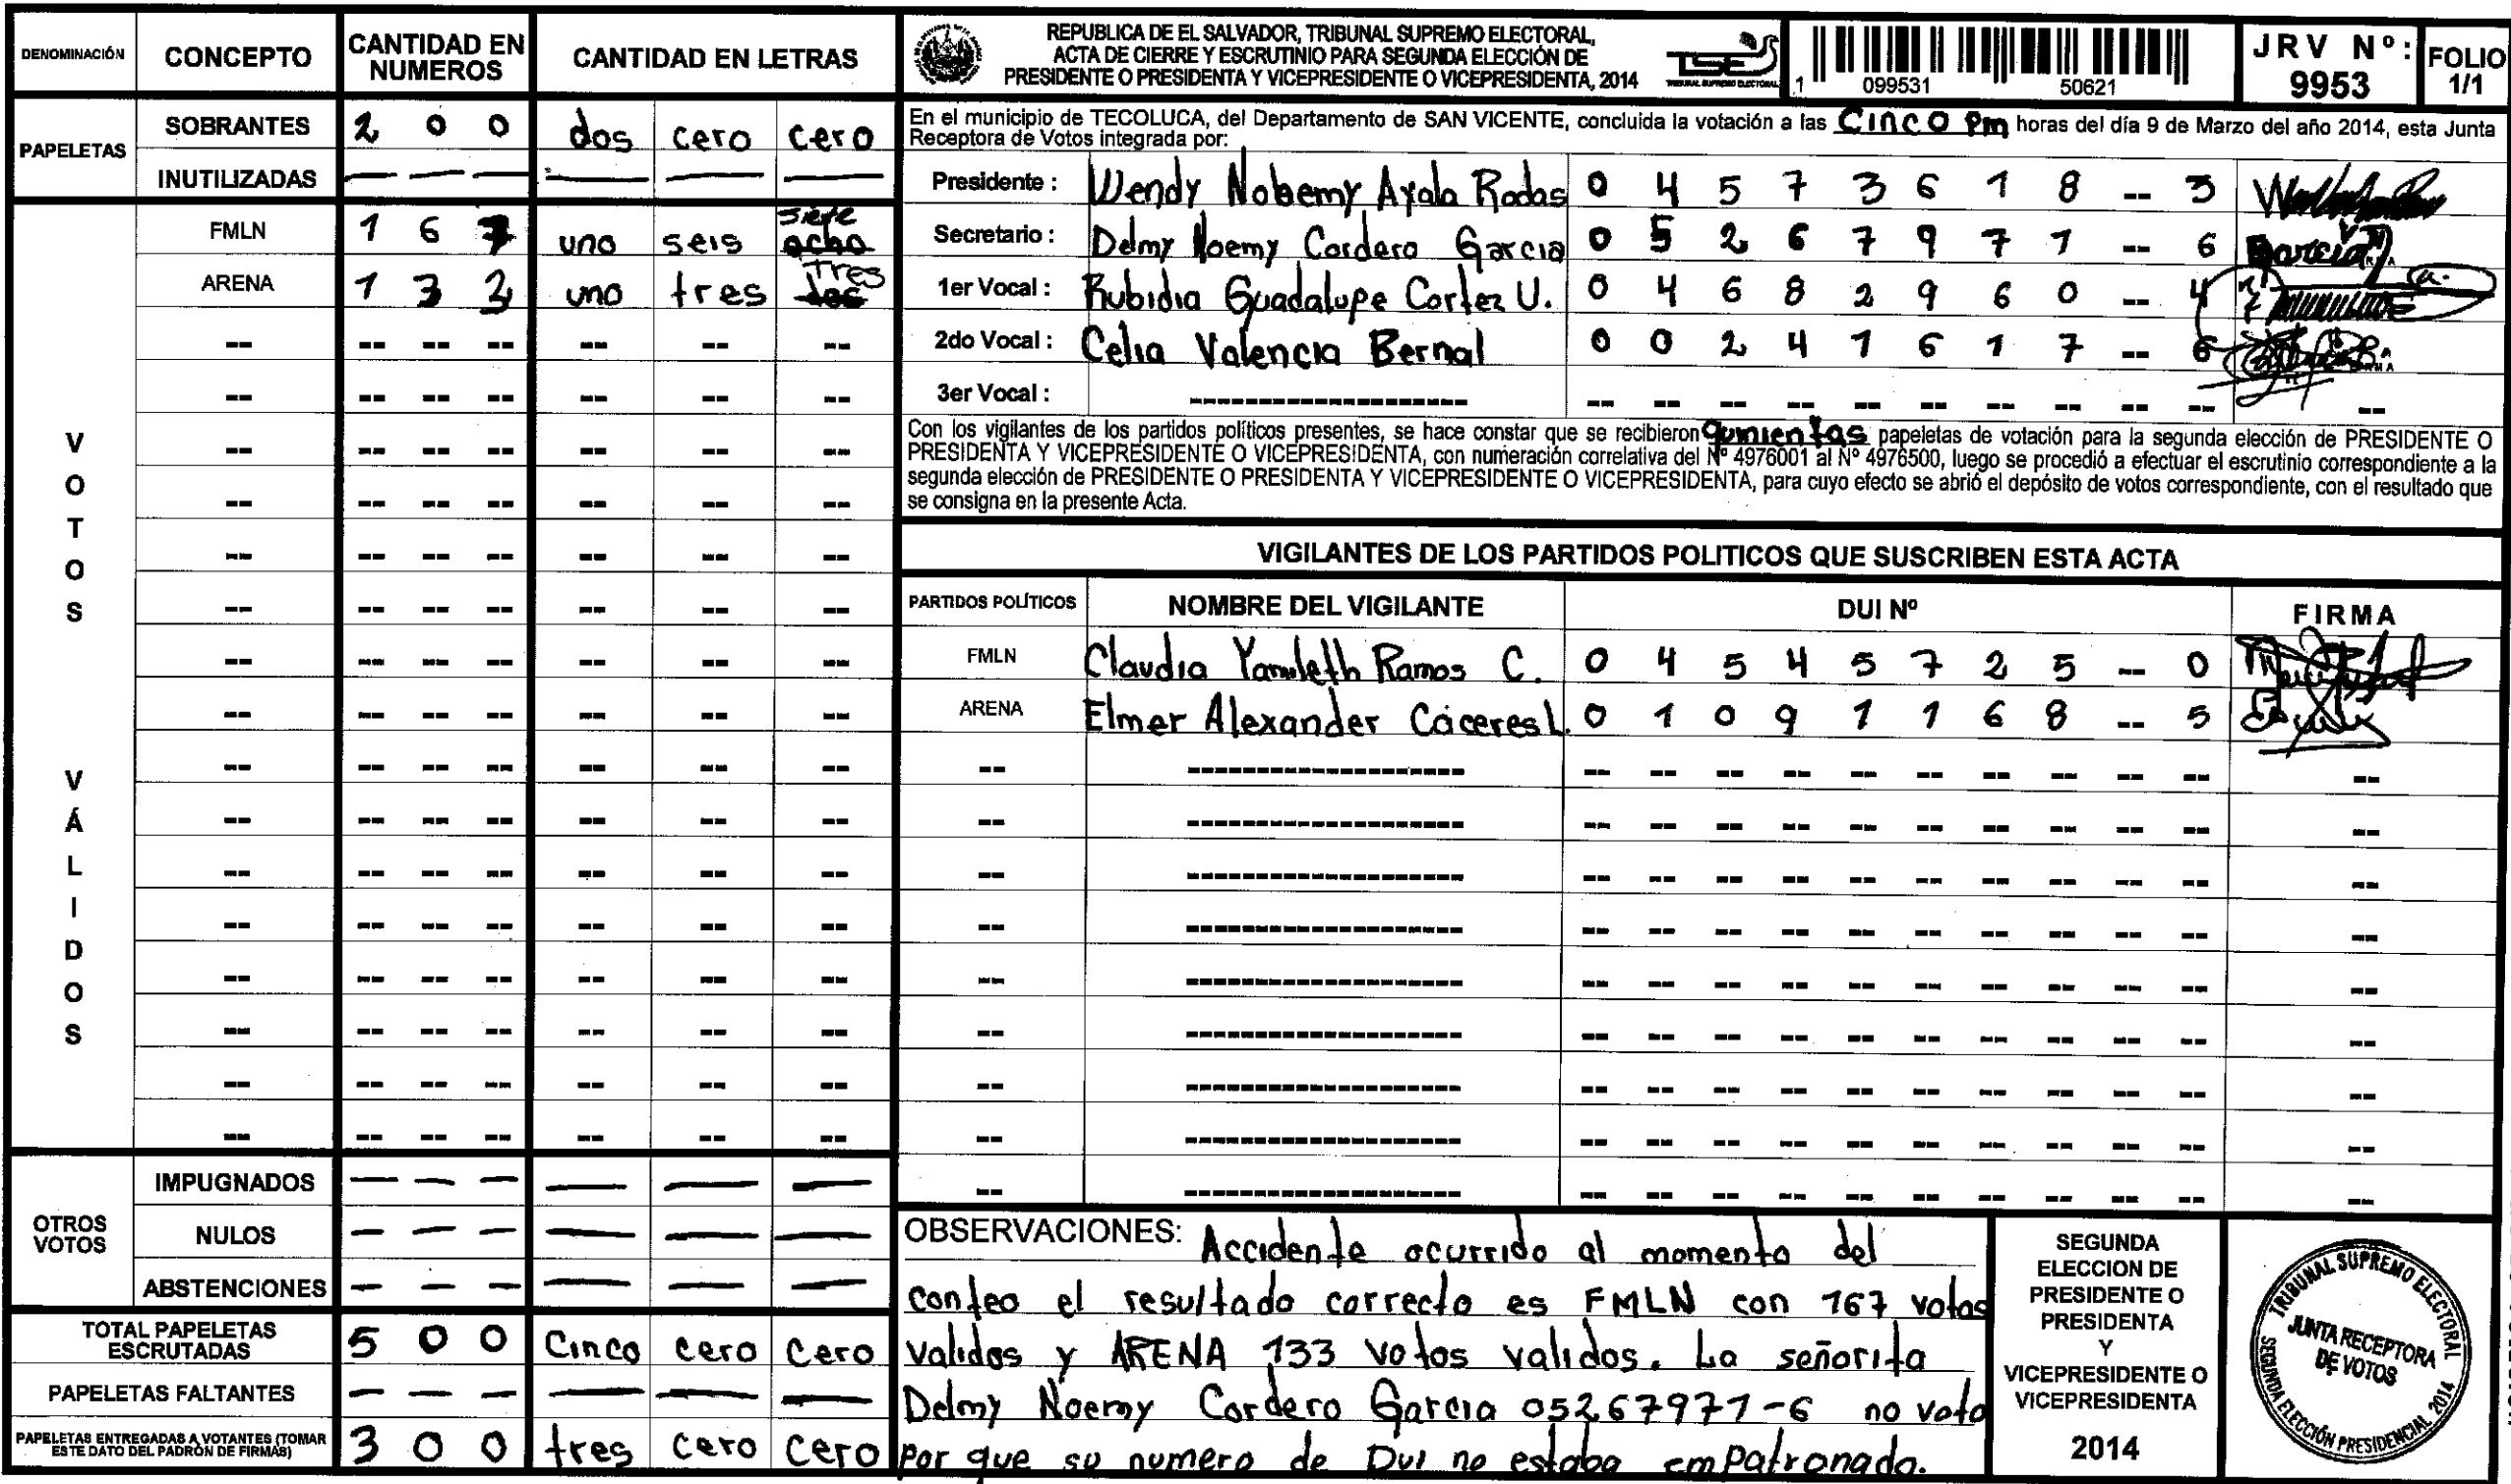 DENOMINACIÓN CONCEPTO CANTIDAD EN NUMEROS CANTIDAD EN LETRAS
PAPELETAS
SOBRANTES 2 0 0 dos cero cero
INUTILIZADAS — — — — — —
VOTOS VÁLIDOS
FMLN 1 6 7 uno seis ocho siete
ARENA 1 3 3 uno tres dos tres
OTROS VOTOS
IMPUGNADOS — — — — — —
NULOS — — — — — —
ABSTENCIONES — — — — — —
TOTAL PAPELETAS ESCRUTADAS 5 0 0 Cinco cero cero
PAPELETAS FALTANTES — — — — — —
PAPELETAS ENTREGADAS A VOTANTES (TOMAR ESTE DATO DEL PADRÓN DE FIRMAS) 3 0 0 tres cero cero
REPUBLICA DE EL SALVADOR, TRIBUNAL SUPREMO ELECTORAL,
ACTA DE CIERRE Y ESCRUTINIO PARA SEGUNDA ELECCIÓN DE
PRESIDENTE O PRESIDENTA Y VICEPRESIDENTE O VICEPRESIDENTA, 2014
TSE
TRIBUNAL SUPREMO ELECTORAL
1 099531 50621
JRV Nº: 9953
FOLIO 1/1
En el municipio de TECOLUCA, del Departamento de SAN VICENTE, concluida la votación a las Cinco Pm horas del día 9 de Marzo del año 2014, esta Junta
Receptora de Votos integrada por:
Presidente : Wendy Nohemy Ayala Rodas 0 4 5 7 3 6 1 8 -- 3
Secretario : Delmy Noemy Cordero Garcia 0 5 2 6 7 9 7 1 -- 6
1er Vocal : Rubidia Guadalupe Cortez U. 0 4 6 8 2 9 6 0 -- 4
2do Vocal : Celia Valencia Bernal 0 0 2 4 1 6 1 7 -- 6
3er Vocal : --------------------
Con los vigilantes de los partidos políticos presentes, se hace constar que se recibieron quinientas papeletas de votación para la segunda elección de PRESIDENTE O
PRESIDENTA Y VICEPRESIDENTE O VICEPRESIDENTA, con numeración correlativa del Nº 4976001 al Nº 4976500, luego se procedió a efectuar el escrutinio correspondiente a la
segunda elección de PRESIDENTE O PRESIDENTA Y VICEPRESIDENTE O VICEPRESIDENTA, para cuyo efecto se abrió el depósito de votos correspondiente, con el resultado que
se consigna en la presente Acta.
VIGILANTES DE LOS PARTIDOS POLITICOS QUE SUSCRIBEN ESTA ACTA
PARTIDOS POLÍTICOS NOMBRE DEL VIGILANTE DUI Nº FIRMA
FMLN Claudia Yamileth Ramos C. 0 4 5 4 5 7 2 5 -- 0
ARENA Elmer Alexander Cáceres L. 0 1 0 9 1 1 6 8 -- 5
OBSERVACIONES: Accidente ocurrido al momento del
conteo el resultado correcto es FMLN con 167 votos
validos y ARENA 133 votos validos. La señorita
Delmy Noemy Cordero Garcia 05267971-6 no voto
por que su numero de Dui no estaba empatronado.
SEGUNDA
ELECCION DE
PRESIDENTE O
PRESIDENTA
Y
VICEPRESIDENTE O
VICEPRESIDENTA
2014
TRIBUNAL SUPREMO ELECTORAL
JUNTA RECEPTORA
DE VOTOS
SEGUNDA ELECCIÓN PRESIDENCIAL 2014